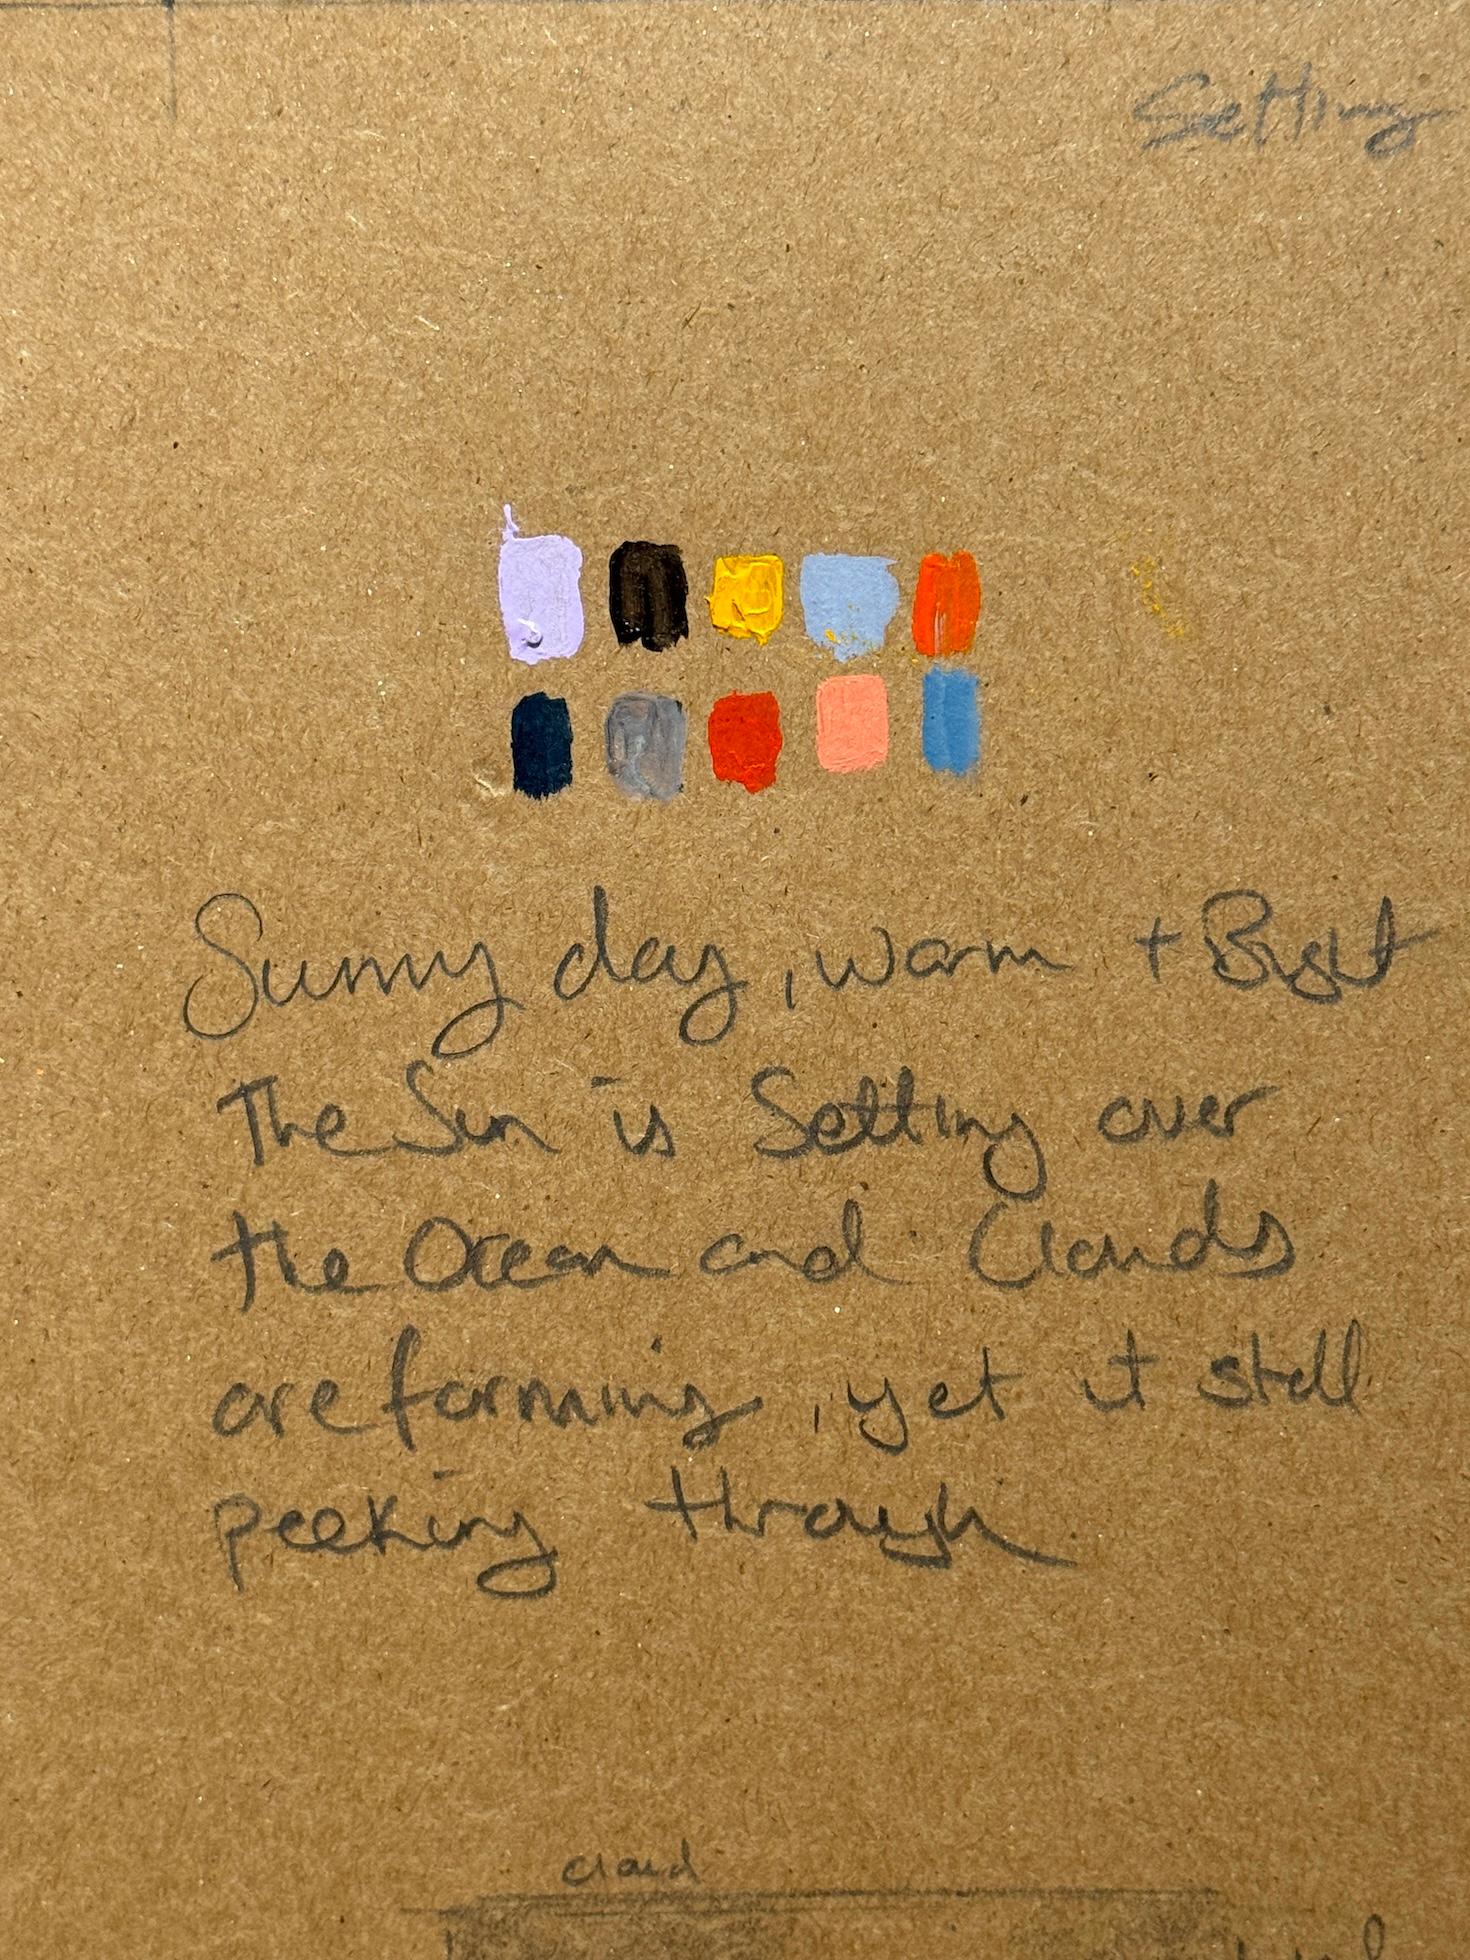 Setting
Sunny day, warm + Bright
The Sun is Setting over
the Ocean and Clouds
are forming, yet it still
peeking through.
cloud